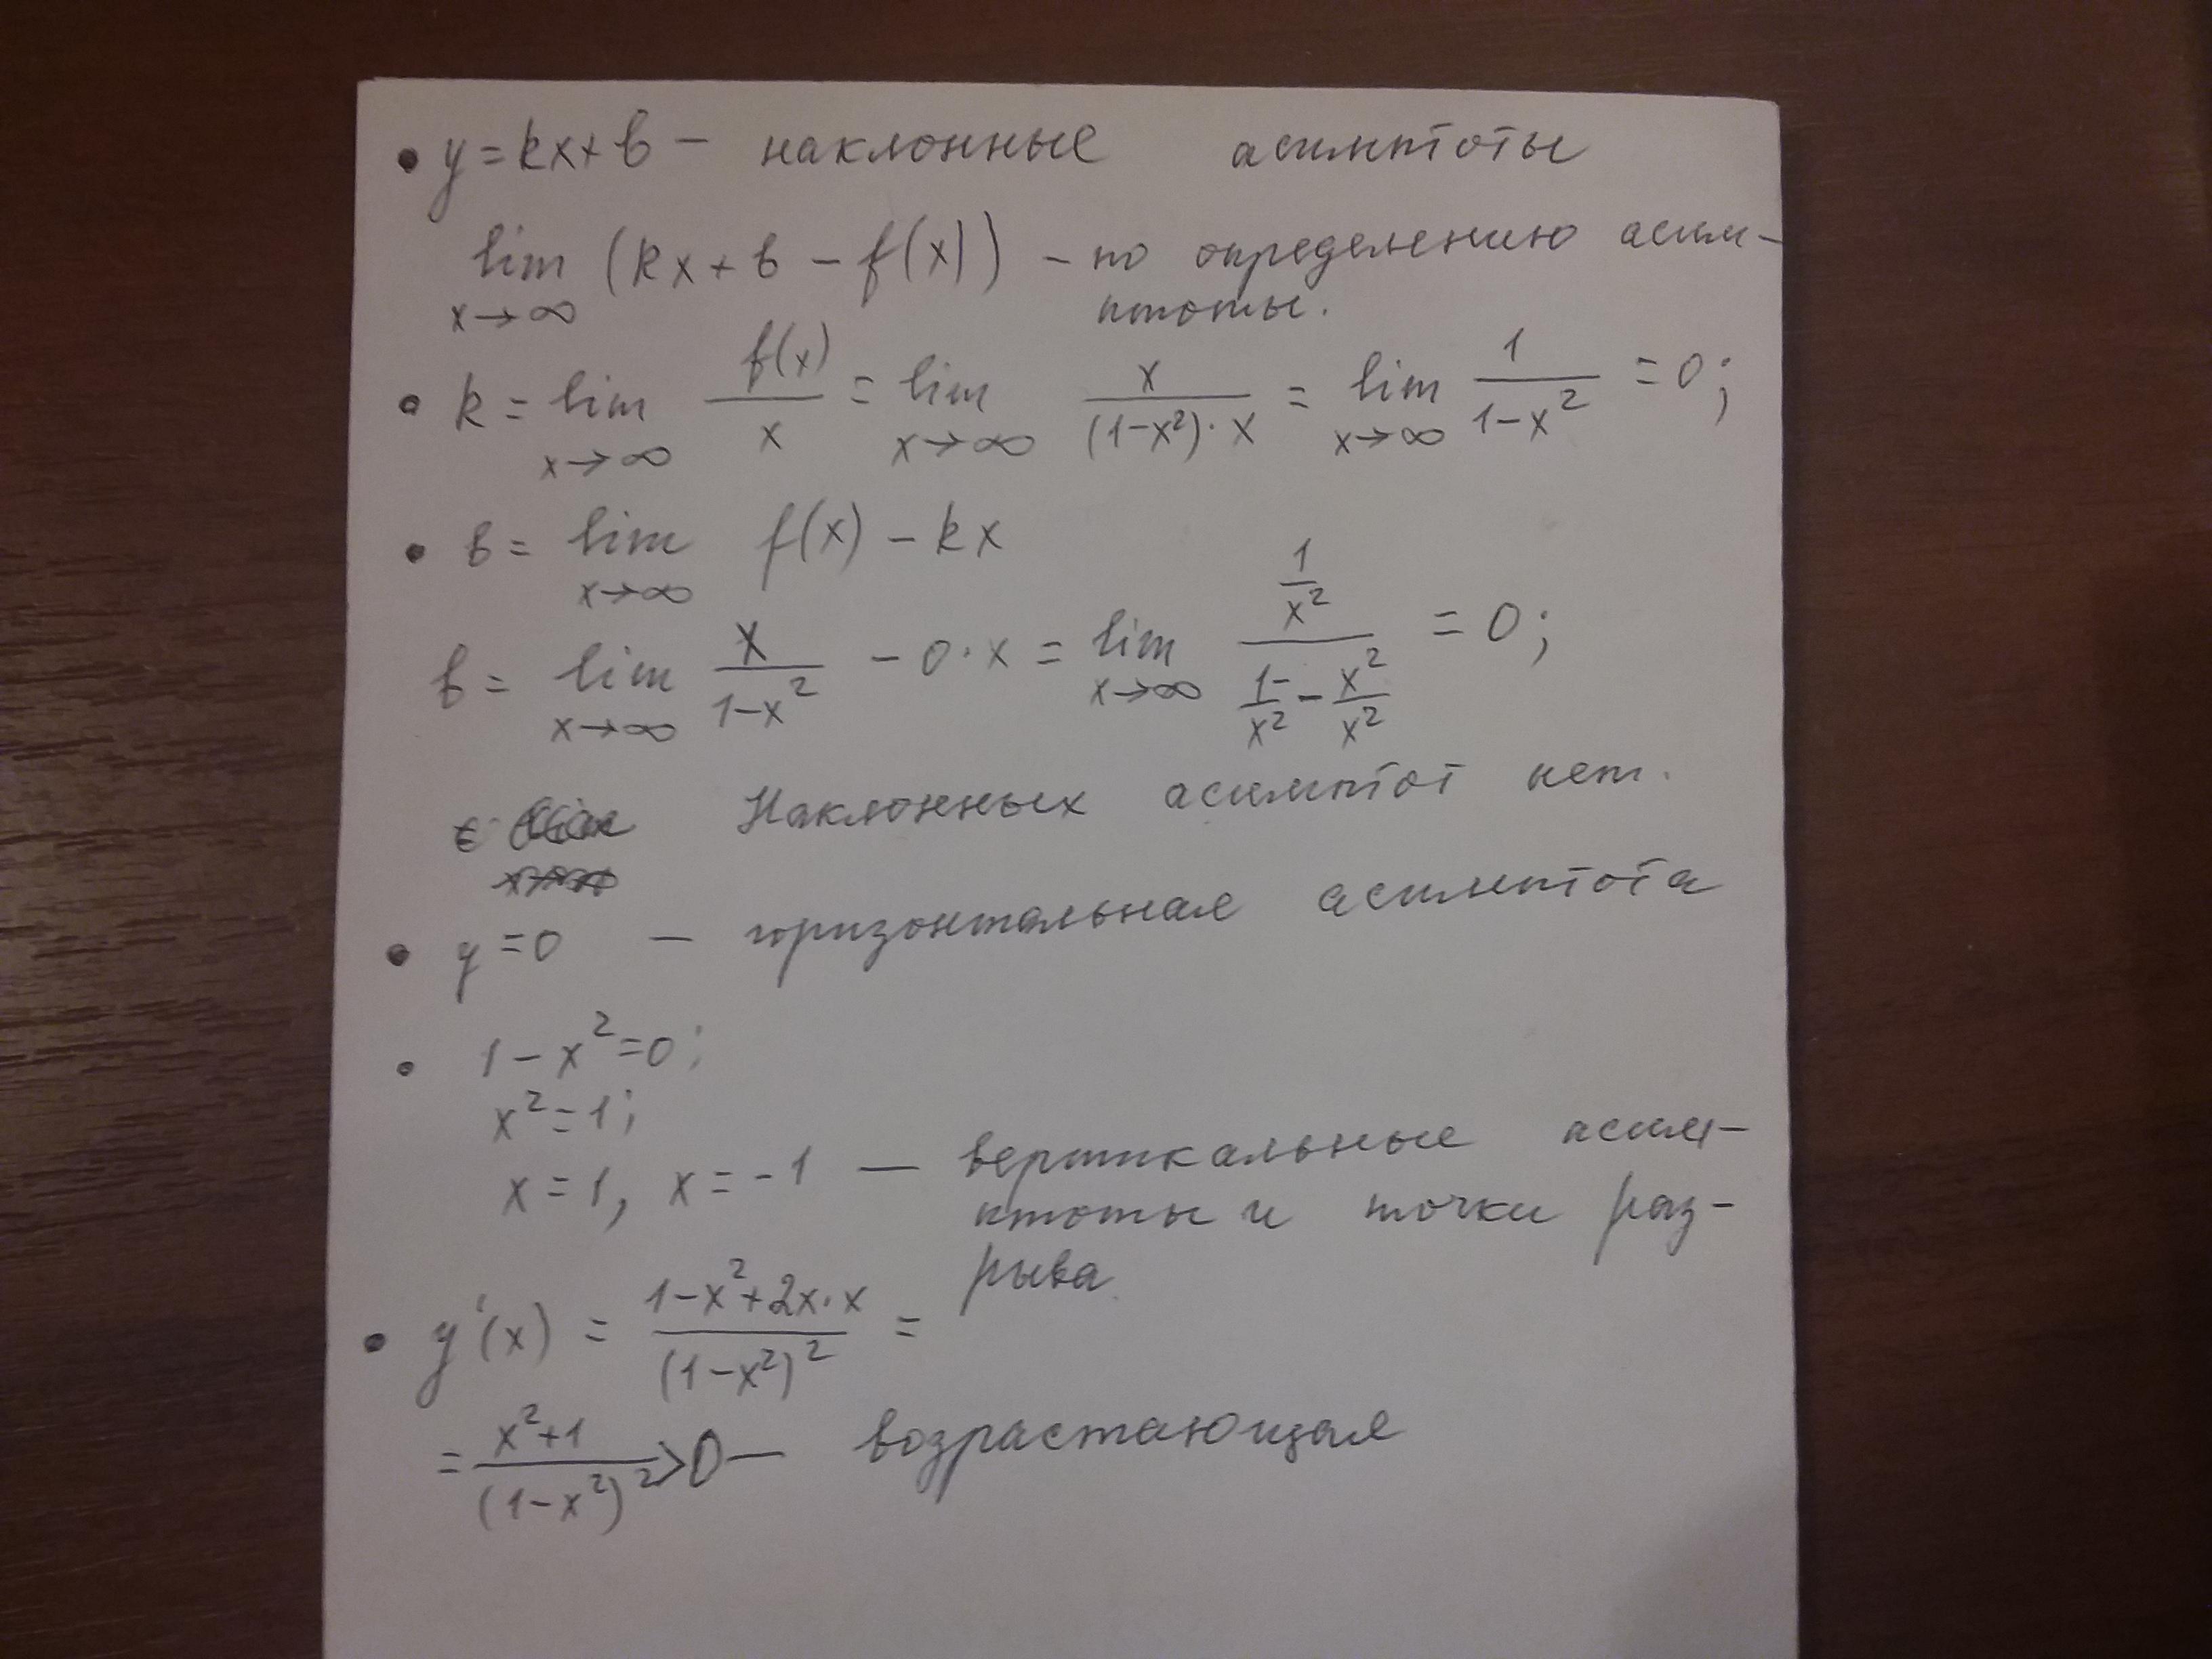 • y = kx + b – наклонные асимптоты
lim (kx + b – f(x)) – по определению асим-
x→∞ птоты.
• k = lim f(x)/x = lim x/((1–x²)·x) = lim 1/(1–x²) = 0;
x→∞ x→∞ x→∞
• b = lim f(x) – kx
x→∞
b = lim x/(1–x²) – 0·x = lim (1/x²)/(1/x² – x²/x²) = 0;
x→∞ x→∞
Наклонных асимптот нет.
• y = 0 — горизонтальная асимптота
• 1 – x² = 0;
x² = 1;
x = 1, x = -1 — вертикальные асим-
птоты и точки раз-
рыва.
• y'(x) = (1–x²+2x·x)/(1–x²)² =
= (x²+1)/(1–x²)² > 0 — возрастающая